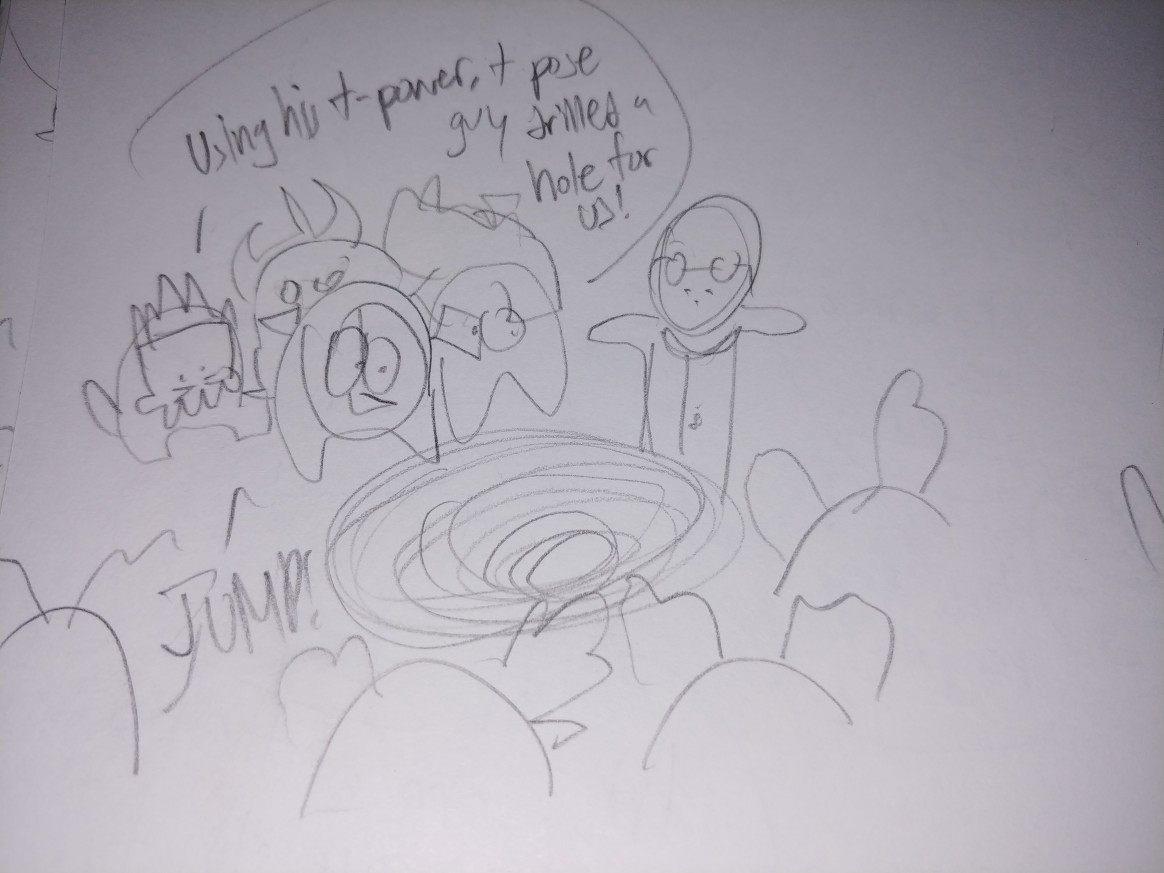 Using his t-power, t pose
guy drilled a
hole for
us!
JUMP!